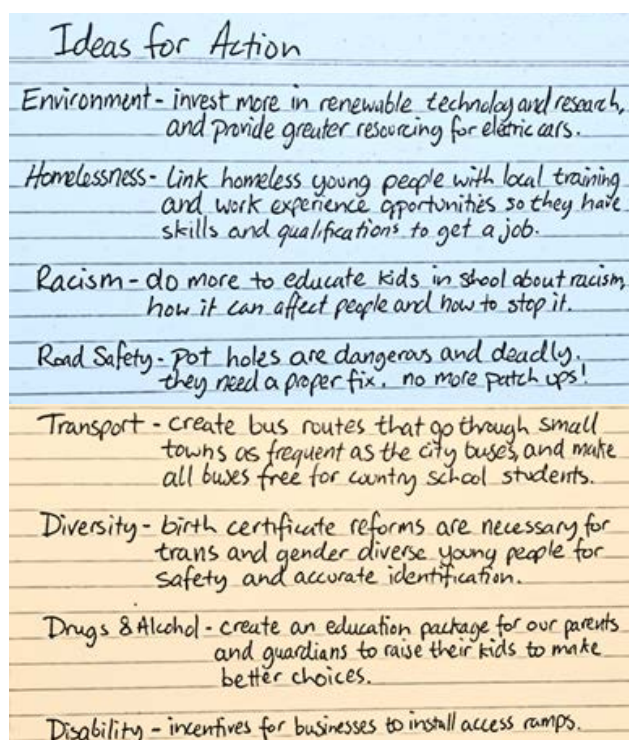 Ideas for Action
Environment - invest more in renewable technology and research,
and provide greater resourcing for eletric cars.
Homelessness - Link homeless young people with local training
and work experience opportunities so they have
skills and qualifications to get a job.
Racism - do more to educate kids in shool about racism,
how it can affect people and how to stop it.
Road Safety - pot holes are dangerous and deadly.
they need a proper fix. no more patch ups!
Transport - create bus routes that go through small
towns as frequent as the city buses, and make
all buses free for country school students.
Diversity - birth certificate reforms are necessary for
trans and gender diverse young people for
safety and accurate identification.
Drugs & Alcohol - create an education package for our parents
and guardians to raise their kids to make
better choices.
Disability - incentives for businesses to install access ramps.